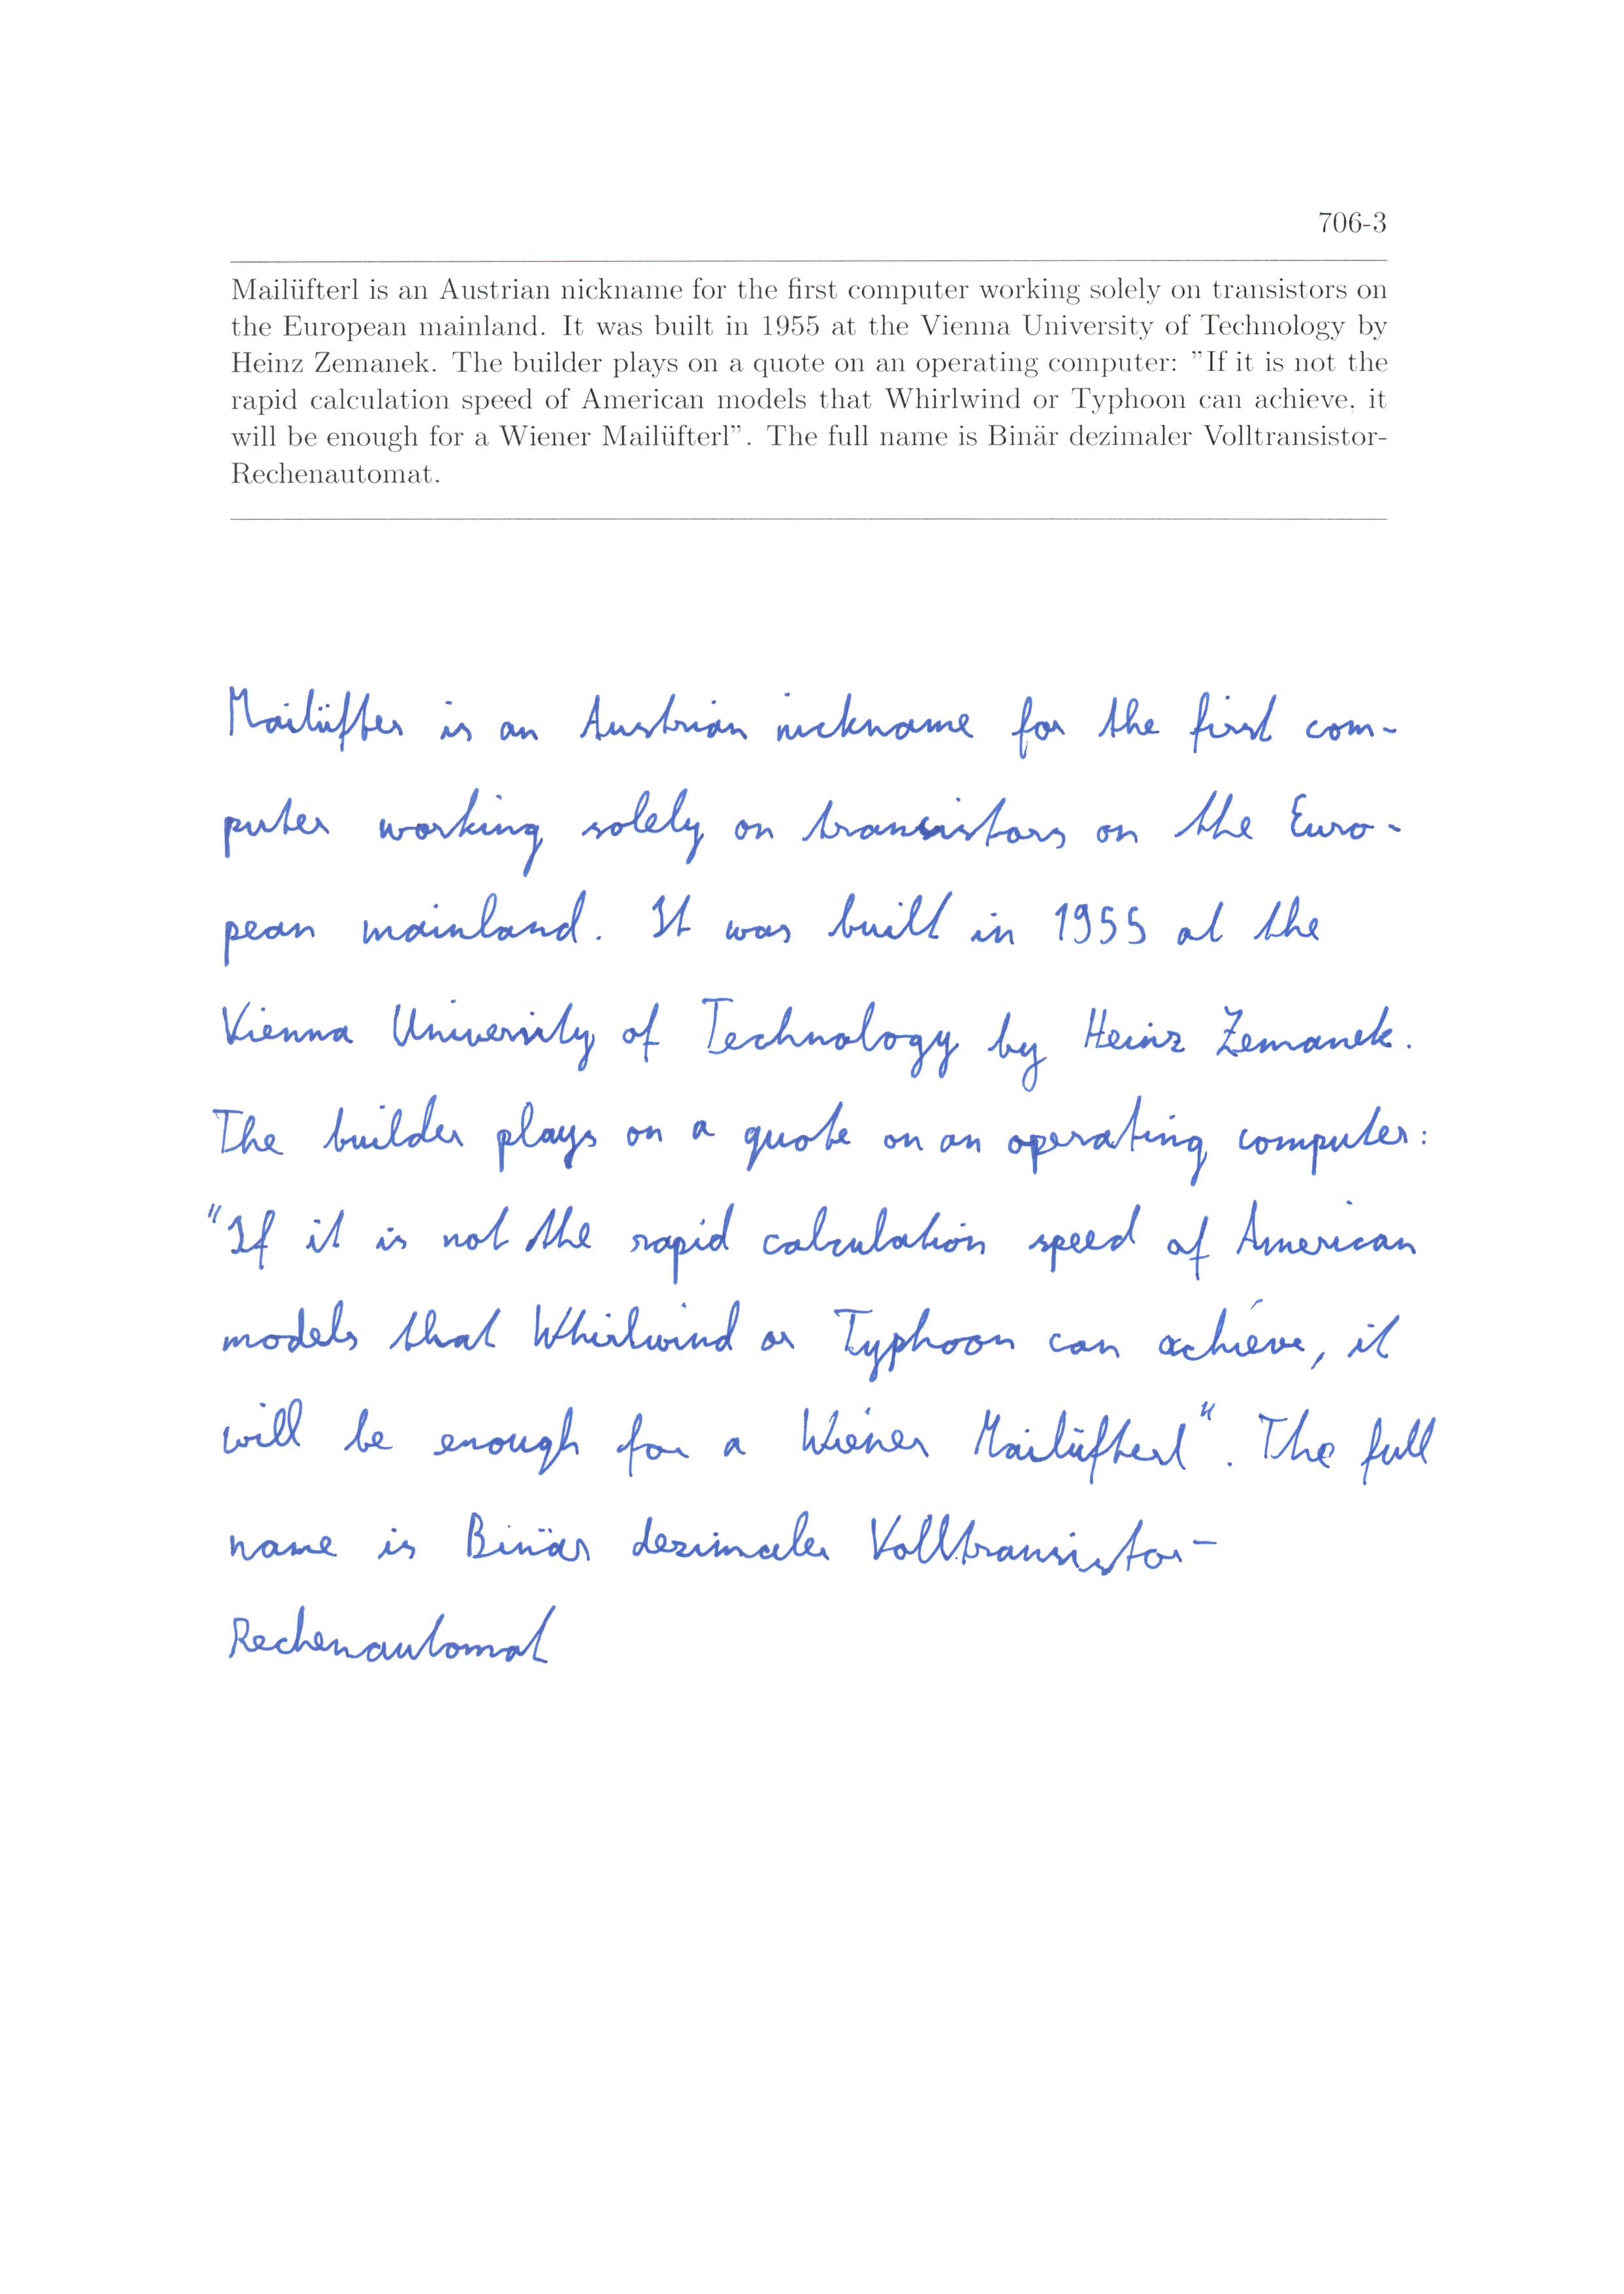 706-3
Mailüfterl is an Austrian nickname for the first computer working solely on transistors on
the European mainland. It was built in 1955 at the Vienna University of Technology by
Heinz Zemanek. The builder plays on a quote on an operating computer: "If it is not the
rapid calculation speed of American models that Whirlwind or Typhoon can achieve, it
will be enough for a Wiener Mailüfterl". The full name is Binär dezimaler Volltransistor-
Rechenautomat.
Mailüfter is an Austrian nickname for the first com-
puter working solely on transistors on the Euro-
pean mainland. It was built in 1955 at the
Vienna University of Technology by Heinz Zemanek.
The builder plays on a quote on an operating computer:
"If it is not the rapid calculation speed of American
models that Whirlwind or Typhoon can achieve, it
will be enough for a Wiener Mailüfterl". The full
name is Binär dezimaler Volltransistor-
Rechenautomat